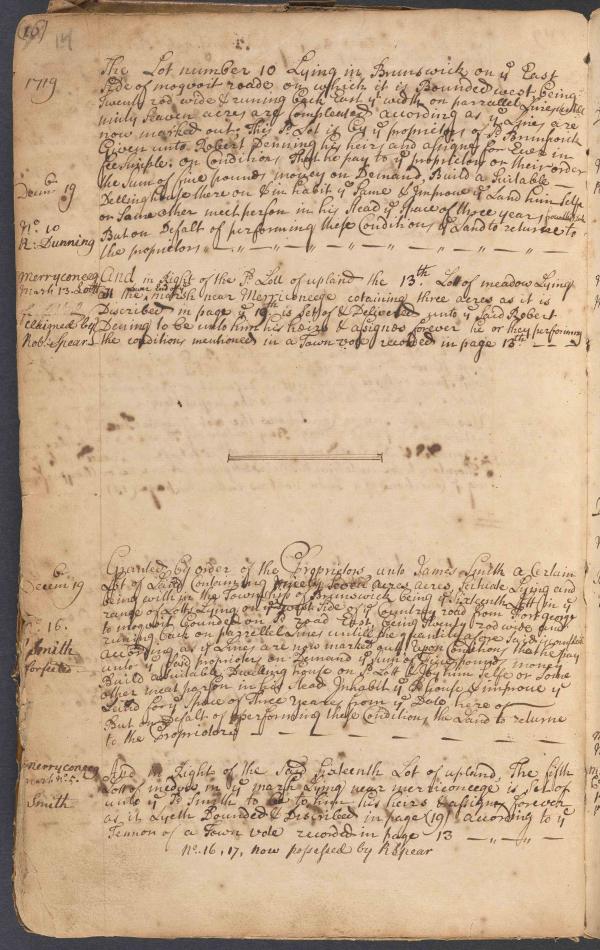 (16)
14
1719
The Lot number 10 Lying in Brunswick on yͤ East
Side of moqvoit roade on which it is Bounded west being
Twenty rod wide & runing back East yͤ width on parrallel Lines untill
ninty Seaven acres are Compleated according as yͤ Lines are
now marked out. This sͩ Lot is by yͤ proprietors of sͩ Brunswick
Given unto Robert Denning his heirs and assigns for Ever in
feesimple. on Conditions That he pay to yͤ proprietors or their order
the Sum of five pounds money on Demand, Build a Suitable
Decemᵇʳ 19
Delling house there on & in habit yͤ Same & Improve yͤ Land him Selfe
or Some other meet person in his Stead yͤ Space of three years
Nͦ. 10
But on Defalt of performing these Conditions yͤ Land to returne to
R: Dunning
the proprietors
Merryconeeg
And in Right of the sͩ Lott of upland the 13.ᵗʰ Lott of meadow Lying
marsh 13. Lott
at the Lower End of yͤ marsh near Merriconeege cotaining three acres as it is
Described in page yͤ 19ᵗʰ is Set of & Delivered unto yͤ Said Robert
claimed by
Dening to be unto him his heirs & assignes forever he or they performing
Rob. Spear
the conditions mentioned in a Town vote recorded in page 13ᵗʰ
Granted by order of the Proprietors unto James Smith a Certain
Decemᵇʳ 19
Lot of Land Containing ninety Seven acres acres Scituate Lying and
being with in the Township of Brunswick being yͤ Sixteenth Lott in yͤ
range of Lotts Lying on yͤ South Side of yͤ Country road from fort george
to moqvoit Bounded on sͩ road East, being Twenty rod wide and
Nͦ. 16.
runing back on parrellel Lines untill the quantity afore Said is compleat
J Smith
According as yͤ Lines are now marked out, Upon Conditions that he pay
forfeited
unto yͤ Said proprietors on Demand yͤ Sum of five pounds money
Build a suitable Dwelling house on sͩ Lot & by him Selfe or Some
other meet person in his Stead Inhabit yͤ sͩ House & improve yͤ
Land for yͤ Space of Three Yeares from yͤ Date here of
But on Defalt of performing these Conditions the Land to returne
to the Proprietors
merryconeeg
And in Right of the Said Sixteenth Lot of upland, The fifth
marsh Nͦ. 5.
Lott of medow in yͤ marsh Lying near merriconeege is Set of
Smith
unto yͤ sͩ Smith to be to him his heirs & assignes forever
as it Lyeth Bounded & Described in page (19) according to yͤ
Tennor of a Town vote recorded in page 13
Nͦ. 16, 17, now possessed by R Spear